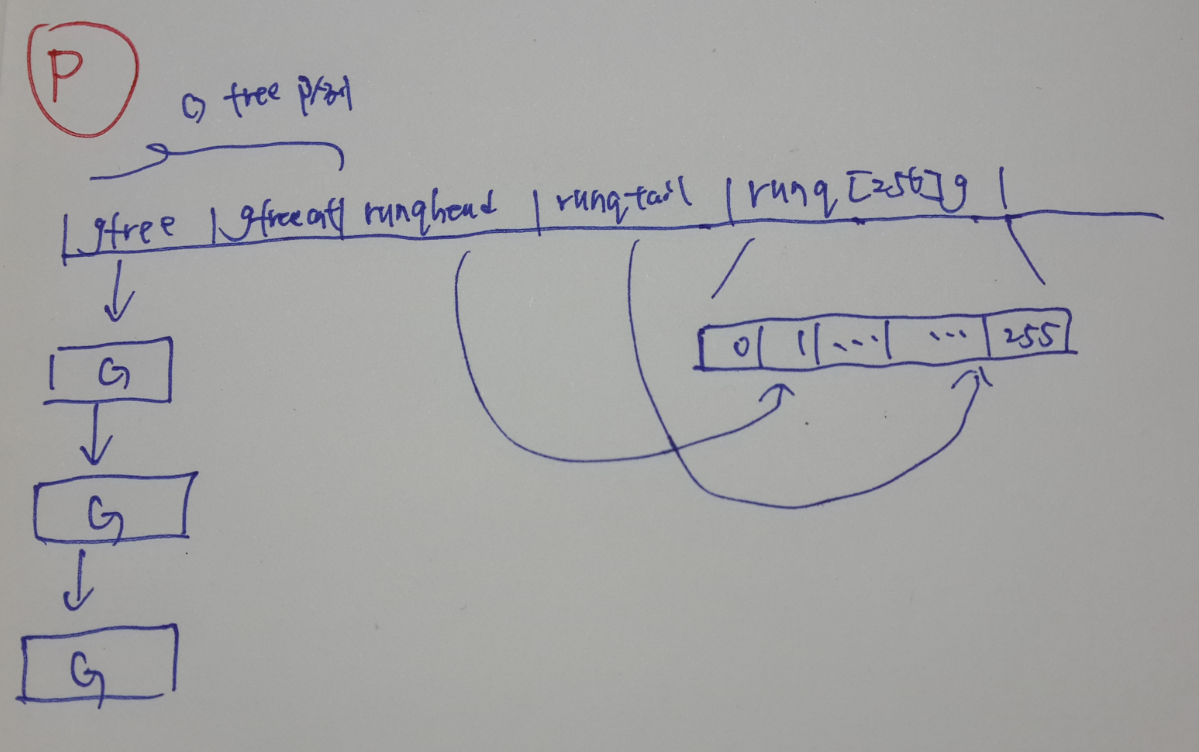 P
G free
gfree gfreecnt runqhead runqtail runq [256]g
0 1 ... ... 255
G
G
G